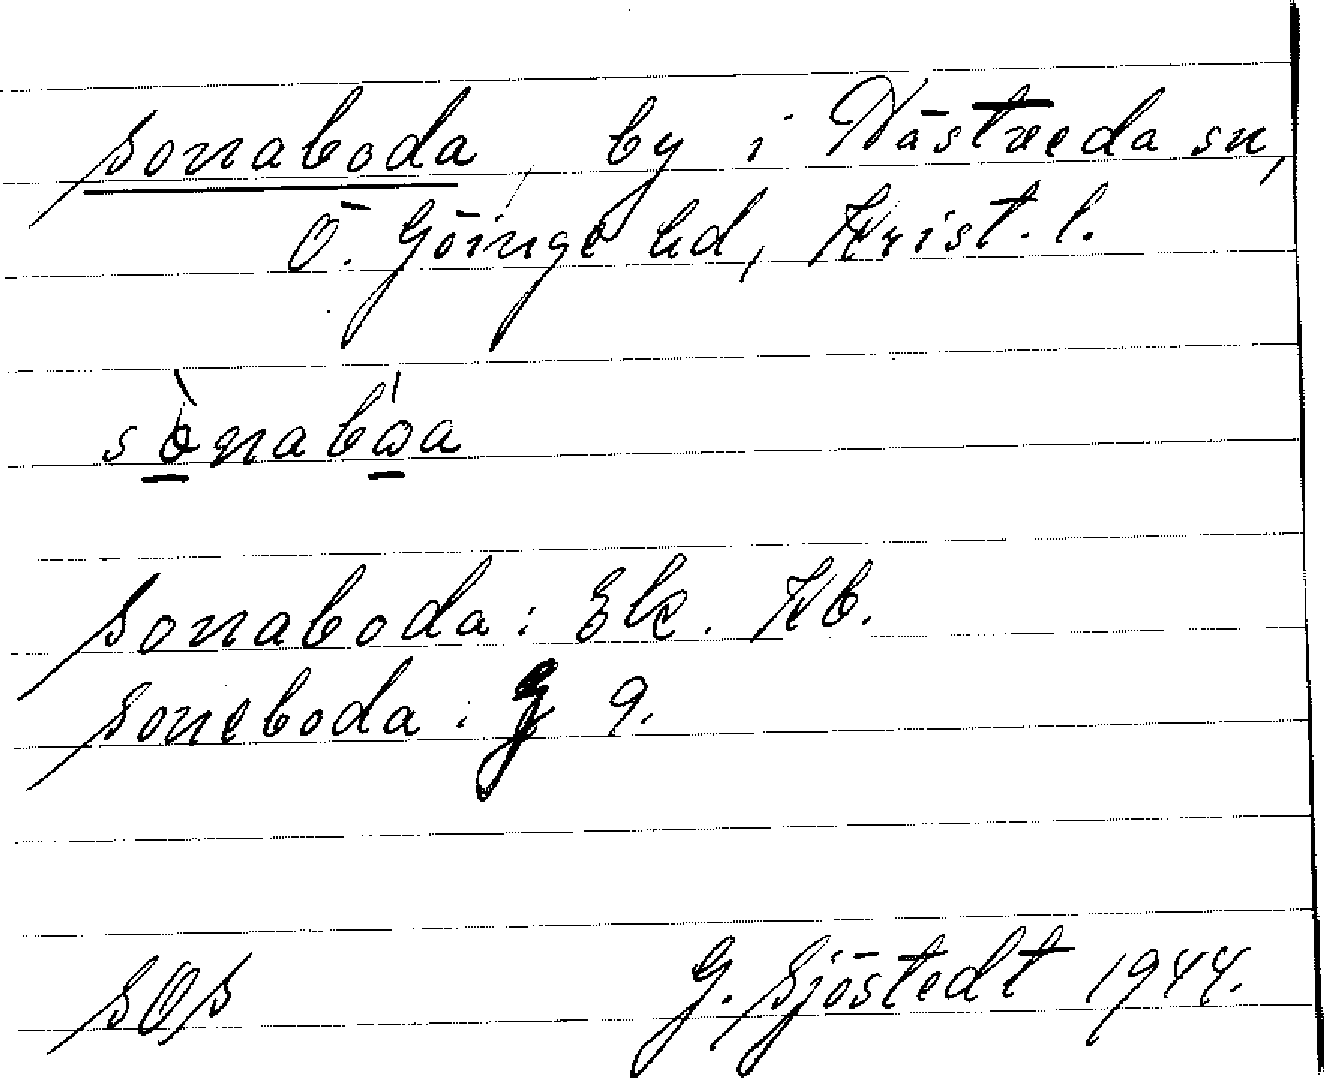 Sonaboda, by i Nästreda sn,
Ö. Göinge hd, Krist. l.
sònabó̱a
Sonaboda: Ek. Kb.
Soneboda: G 9.
SOS
G. Sjöstedt 1944.